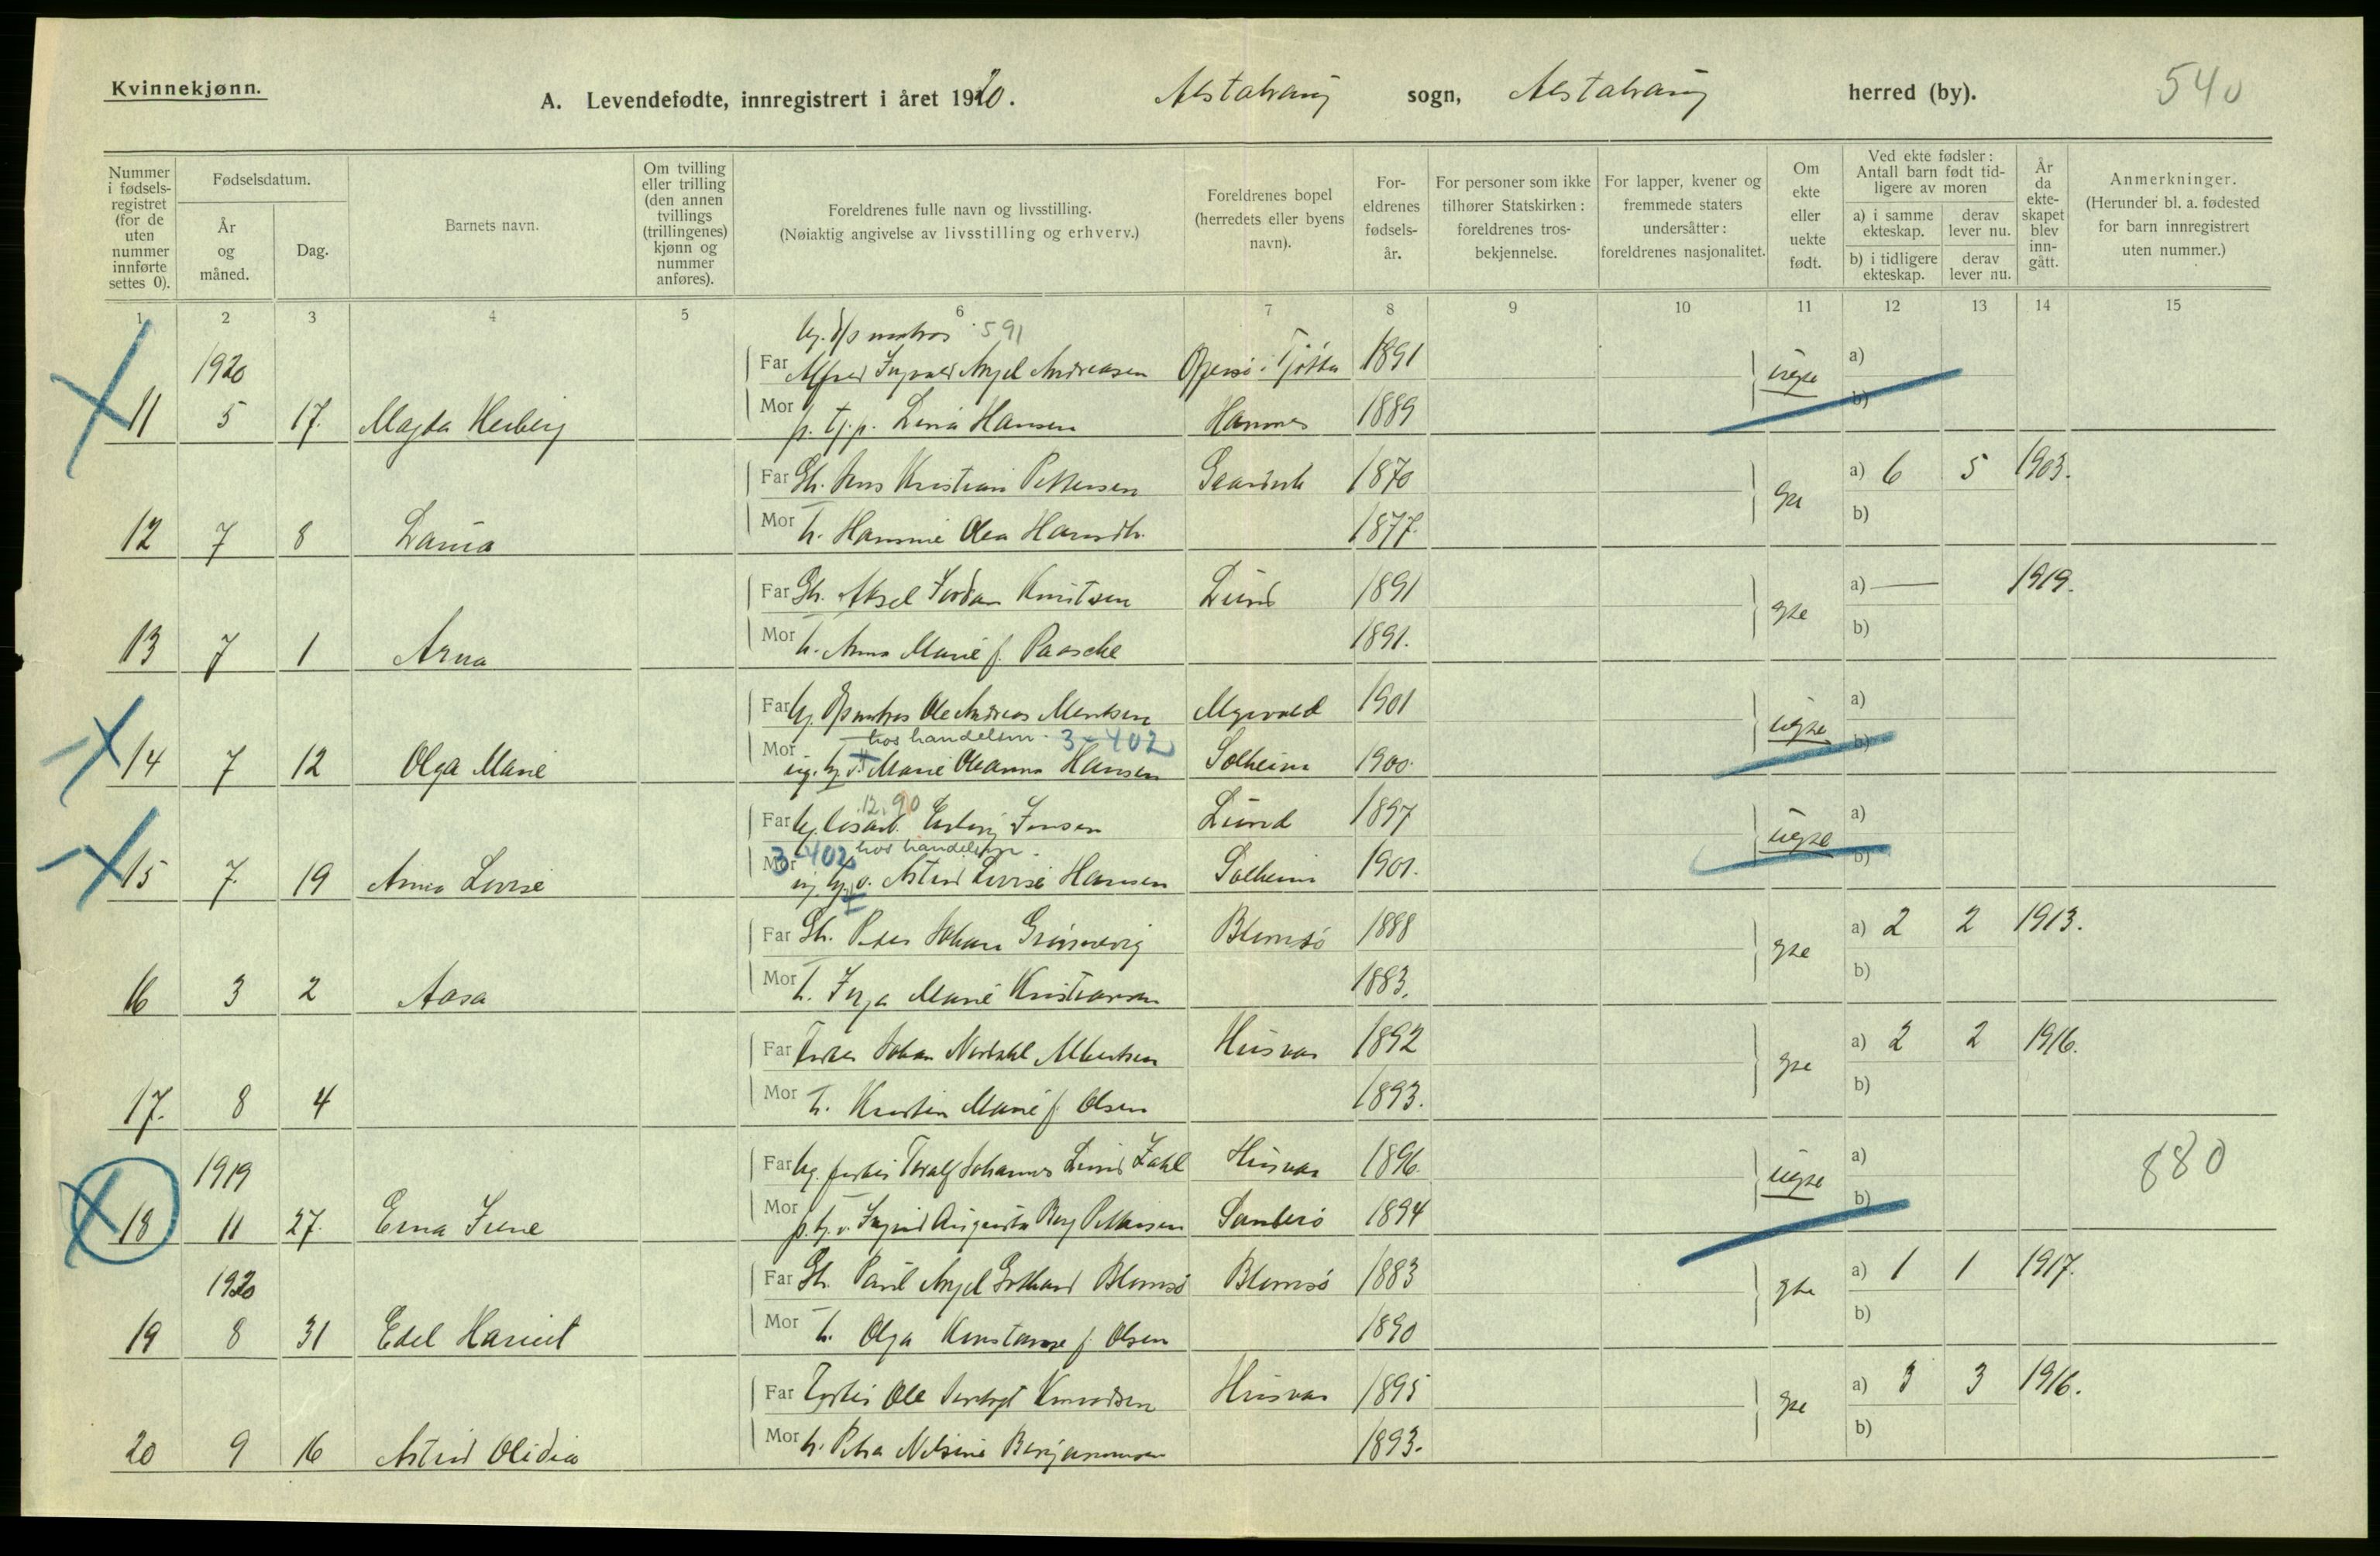 Kvinnekjønn.
A. Levendefødte, innregistrert i året 1920. Alstahaug sogn, Alstahaug herred (by). 540
Nummer i fødsels-registret (for de uten nummer innførte settes 0).
Fødselsdatum.
År og måned.
Dag.
Barnets navn.
Om tvilling eller trilling (den annen tvillings (trillingenes) kjønn og nummer anføres).
Foreldrenes fulle navn og livsstilling.
(Nøiaktig angivelse av livsstilling og erhverv.)
Foreldrenes bopel (herredets eller byens navn).
For-eldrenes fødsels-år.
For personer som ikke tilhører Statskirken: foreldrenes tros-bekjennelse.
For lapper, kvener og fremmede staters undersåtter: foreldrenes nasjonalitet.
Om ekte eller uekte født.
Ved ekte fødsler: Antall barn født tid-ligere av moren
a) i samme ekteskap. derav lever nu.
b) i tidligere ekteskap. derav lever nu.
År da ekte-skapet blev inn-gått.
Anmerkninger.
(Herunder bl. a. fødested for barn innregistrert uten nummer.)
1 2 3 4 5 6 7 8 9 10 11 12 13 14 15
591
1920 Far Alfred Ingvald Angel Andreasen Tjøtta 1891 uegte a)
11 5 17. Magda Herberg Mor Lina Hansen Hamnes 1889 b)
Far Gb. Jens Kristian Pettersen 1870 a) 6 5 1903.
12 7 8 Mor h. Olea 1877. b)
Far Gb. Aksel Jordan Knutsen Lund 1891 gte a) — 1919.
13 7 1 Arna Mor h. Anna Marie f. Paasche 1891. b)
Far Ole Andreas 1901 uegte a)
hos handelsm. 3-402
14 7 12 Olga Marie Mor Marie Oleanna Hansen Solheim 1900. b)
12.90
Far Jensen Lund 1897 uegte a)
3-402 hos handelsm.
15 7. 19 Anna Lovise Mor Astrid Lovise Hansen Solheim 1901. b)
Far Gb. Peder Johan Blomsø 1888 gte a) 2 2 1913.
16 3 2 Aasa Mor h. Inga Marie Kristiansen 1883. b)
Far Fisker Johan Albertsen Husvær 1892 gte a) 2 2 1916.
17. 8 4 Mor h. Kristin Marie f. Olsen 1893. b)
1919 Far Toralf Johannes Lund Zahl Husvær 1896 uegte a) 880
18 11 27. Erna Irene Mor Ingrid Augusta Berg Pettersen 1894 b)
1920 Far Gb. Paul Angel Gothard Blomsø Blomsø 1883 gte a) 1 1 1917.
19 8 31 Edel Harriet Mor h. Olga Konstanse f. Olsen 1890 b)
Far Fisker Ole Husvær 1895 gte a) 3 3 1916.
20 9 16 Astrid Olidia Mor h. Petra Nilsine Benjaminsen 1893. b)